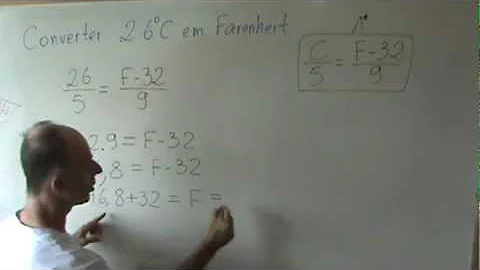 Converter 26°C em Farenhert
C/5 = F-32/9
26/5 = F-32/9
2.9 = F-32
,8 = F-32
6,8+32 = F =